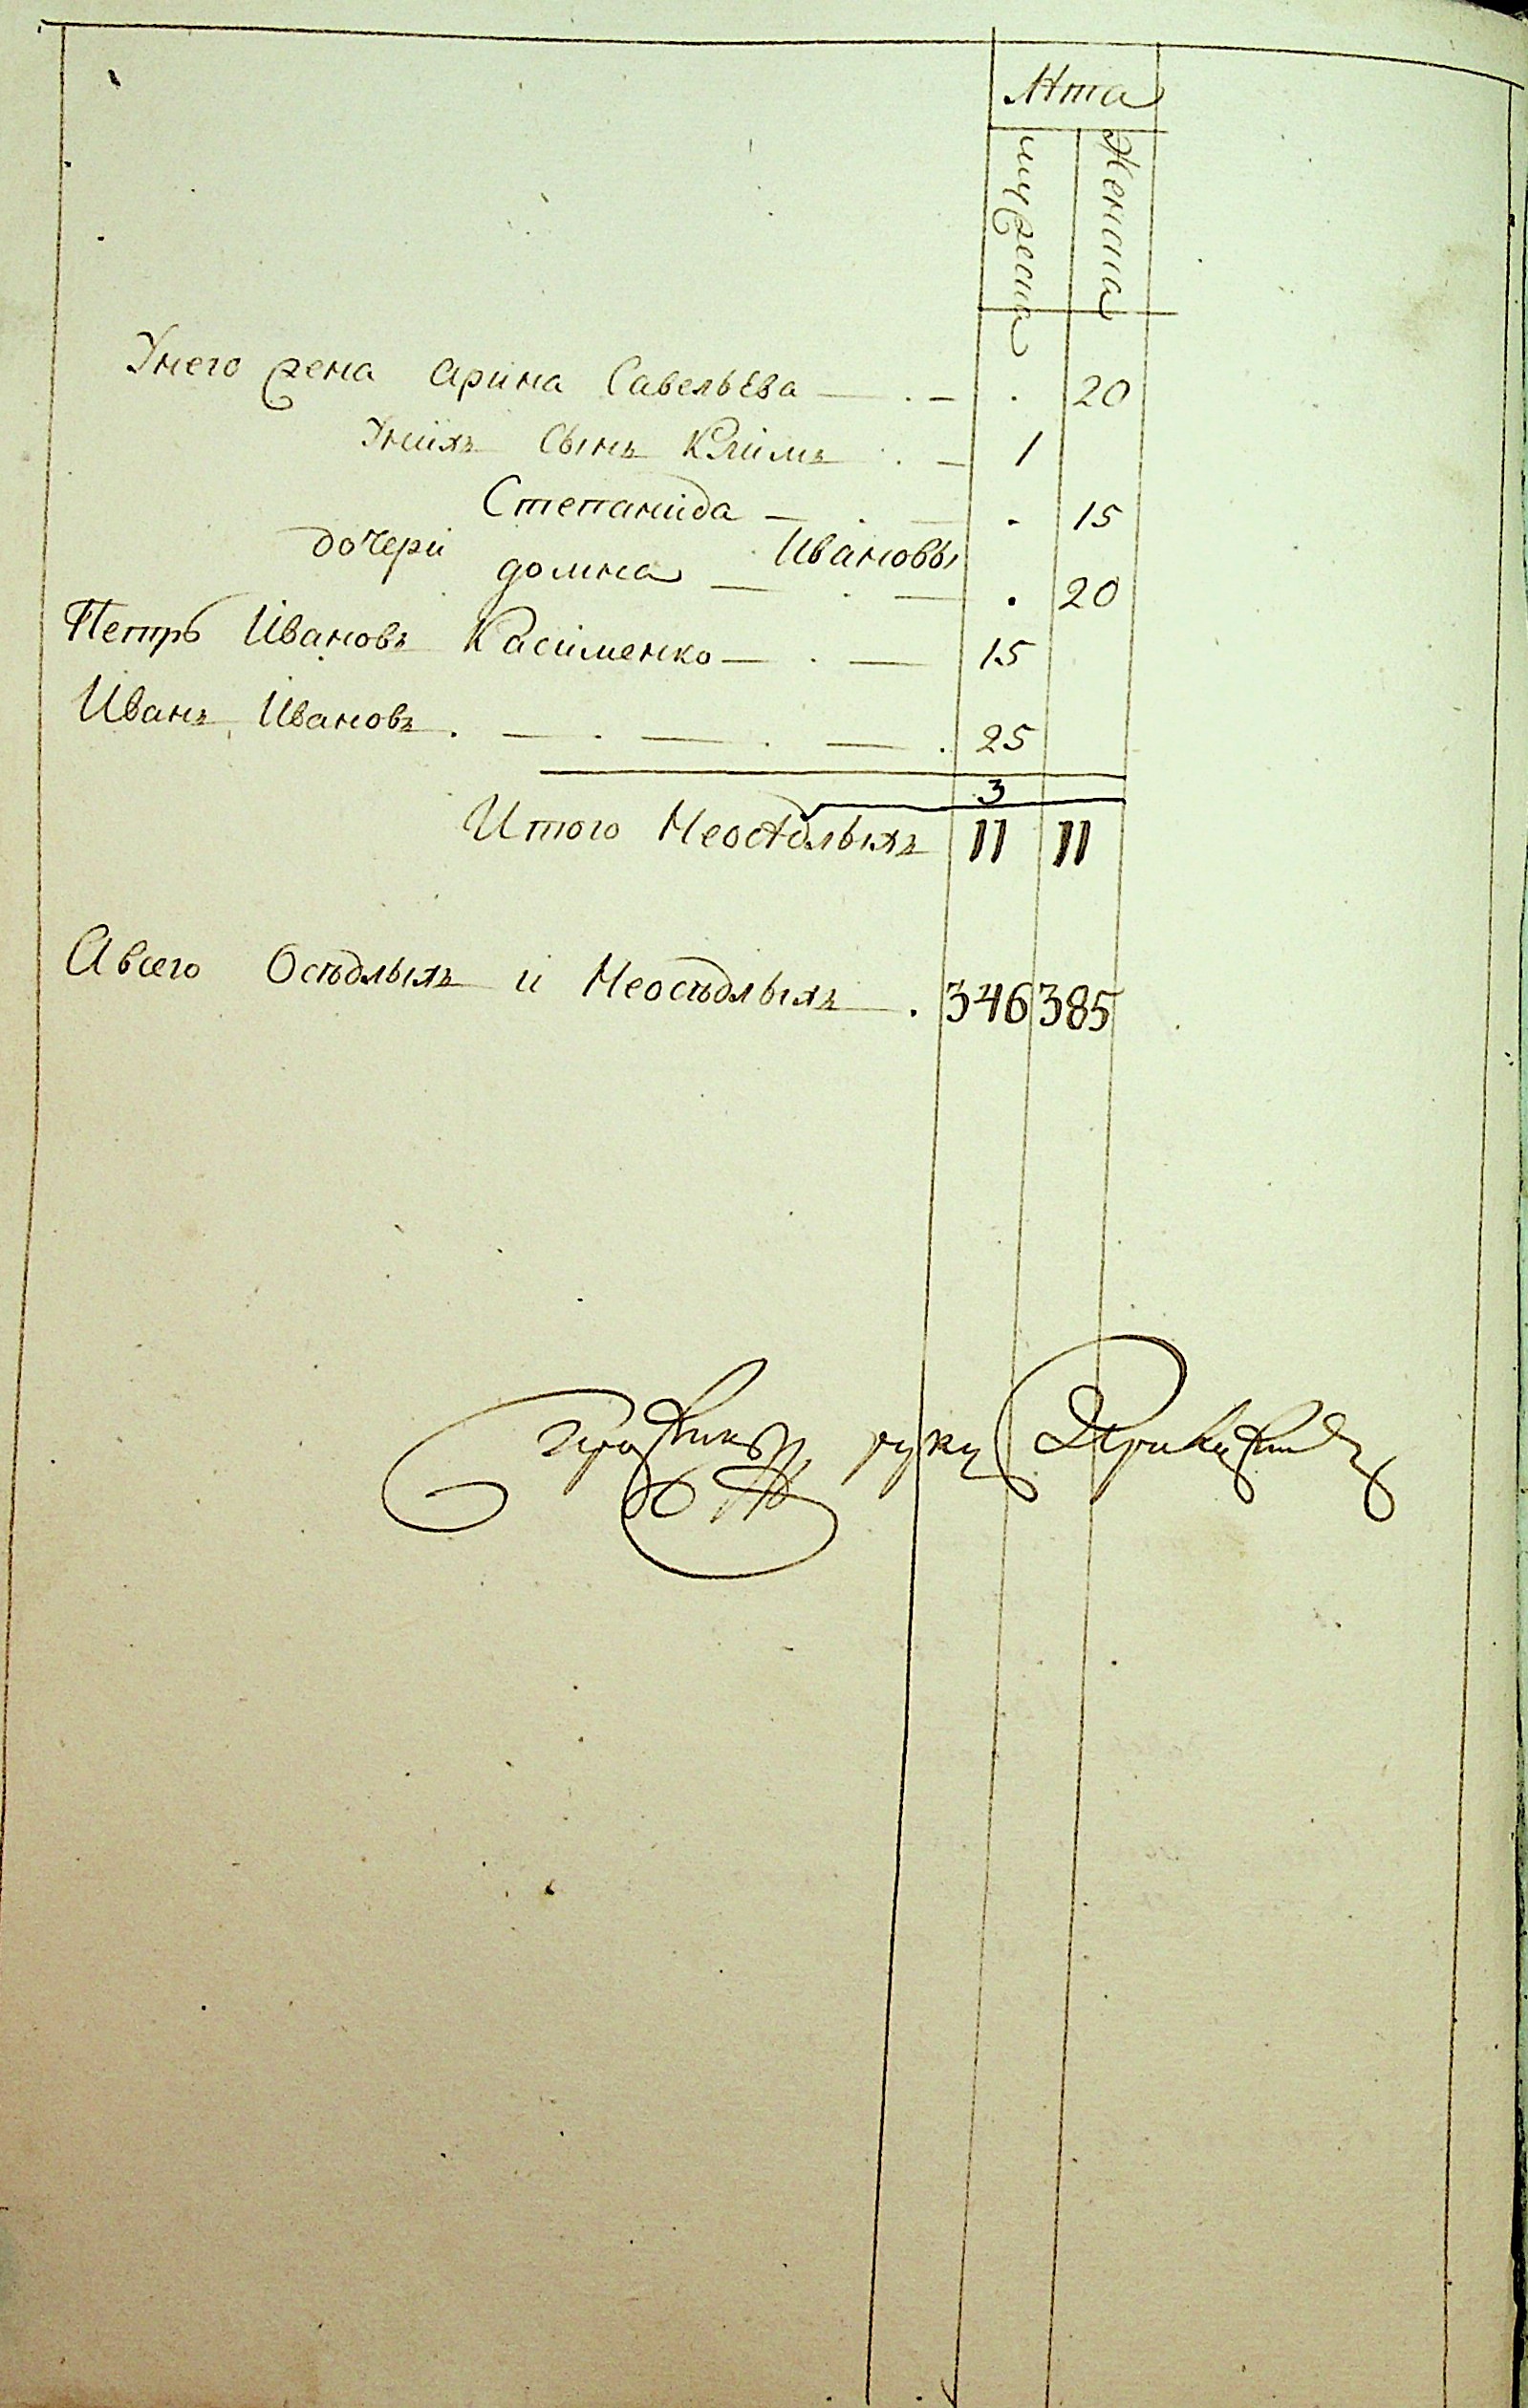 Лѣта
мужеска
Женска
Унего жена Арина Савельева — . — . 20
Унихъ Сынъ Клiмъ . — 1
Степанида — . — . 15
дочери Ивановы
домна — . — . 20
Петръ Ивановъ Касименко — . — 15
Иванъ Ивановъ . — . — . — . 25
3
Итого Неосѣдлыхъ 11 11
Авсего Осѣдлыхъ и Неосѣдлыхъ . 346 385
руку